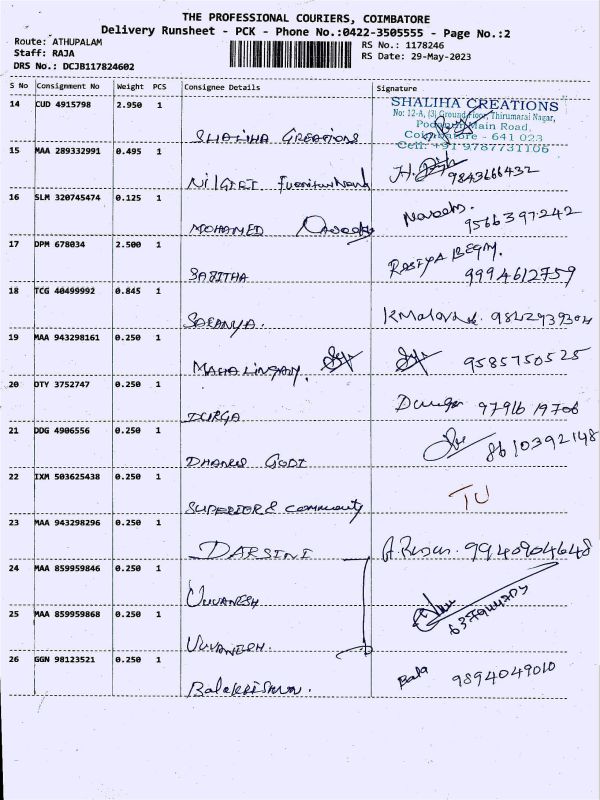 THE PROFESSIONAL COURIERS, COIMBATORE
Delivery Runsheet - PCK - Phone No.:0422-3505555 - Page No.:2
Route: ATHUPALAM
RS No.: 1178246
Staff: RAJA
RS Date: 29-May-2023
DRS No.: DCJB117824602
S No Consignment No Weight PCS Consignee Details Signature
14 CUD 4915798 2.950 1
SHALIHA CREATIONS
No: 12-A, (3) Ground Floor, Thirumarai Nagar,
Podanur Main Road,
Coimbatore - 641 023
Cell: +91 9787731106
SHALIHA CREATIONS
15 MAA 289332991 0.495 1
Nilgiri Furniture 9843666432
16 SLM 320745474 0.125 1
MOHAMED 9566397242
17 DPM 678034 2.500 1
SABITHA RASIYA BEGM. 9994612759
18 TCG 40499992 0.845 1
SARANYA.
19 MAA 943298161 0.250 1
MAHALINGAM. 9585750525
20 OTY 3752747 0.250 1
DURGA Durga 9791619706
21 DDG 4906556 0.250 1
DHANUS GODI 8610392148
22 IXM 503625438 0.250 1
SUPERIOR & community TU
23 MAA 943298296 0.250 1
DARSINI 9940904648
24 MAA 859959846 0.250 1
UVVANESH
25 MAA 859959868 0.250 1
UVVANESH.
26 GGN 98123521 0.250 1
Balakrishnan. Bala 9894049010